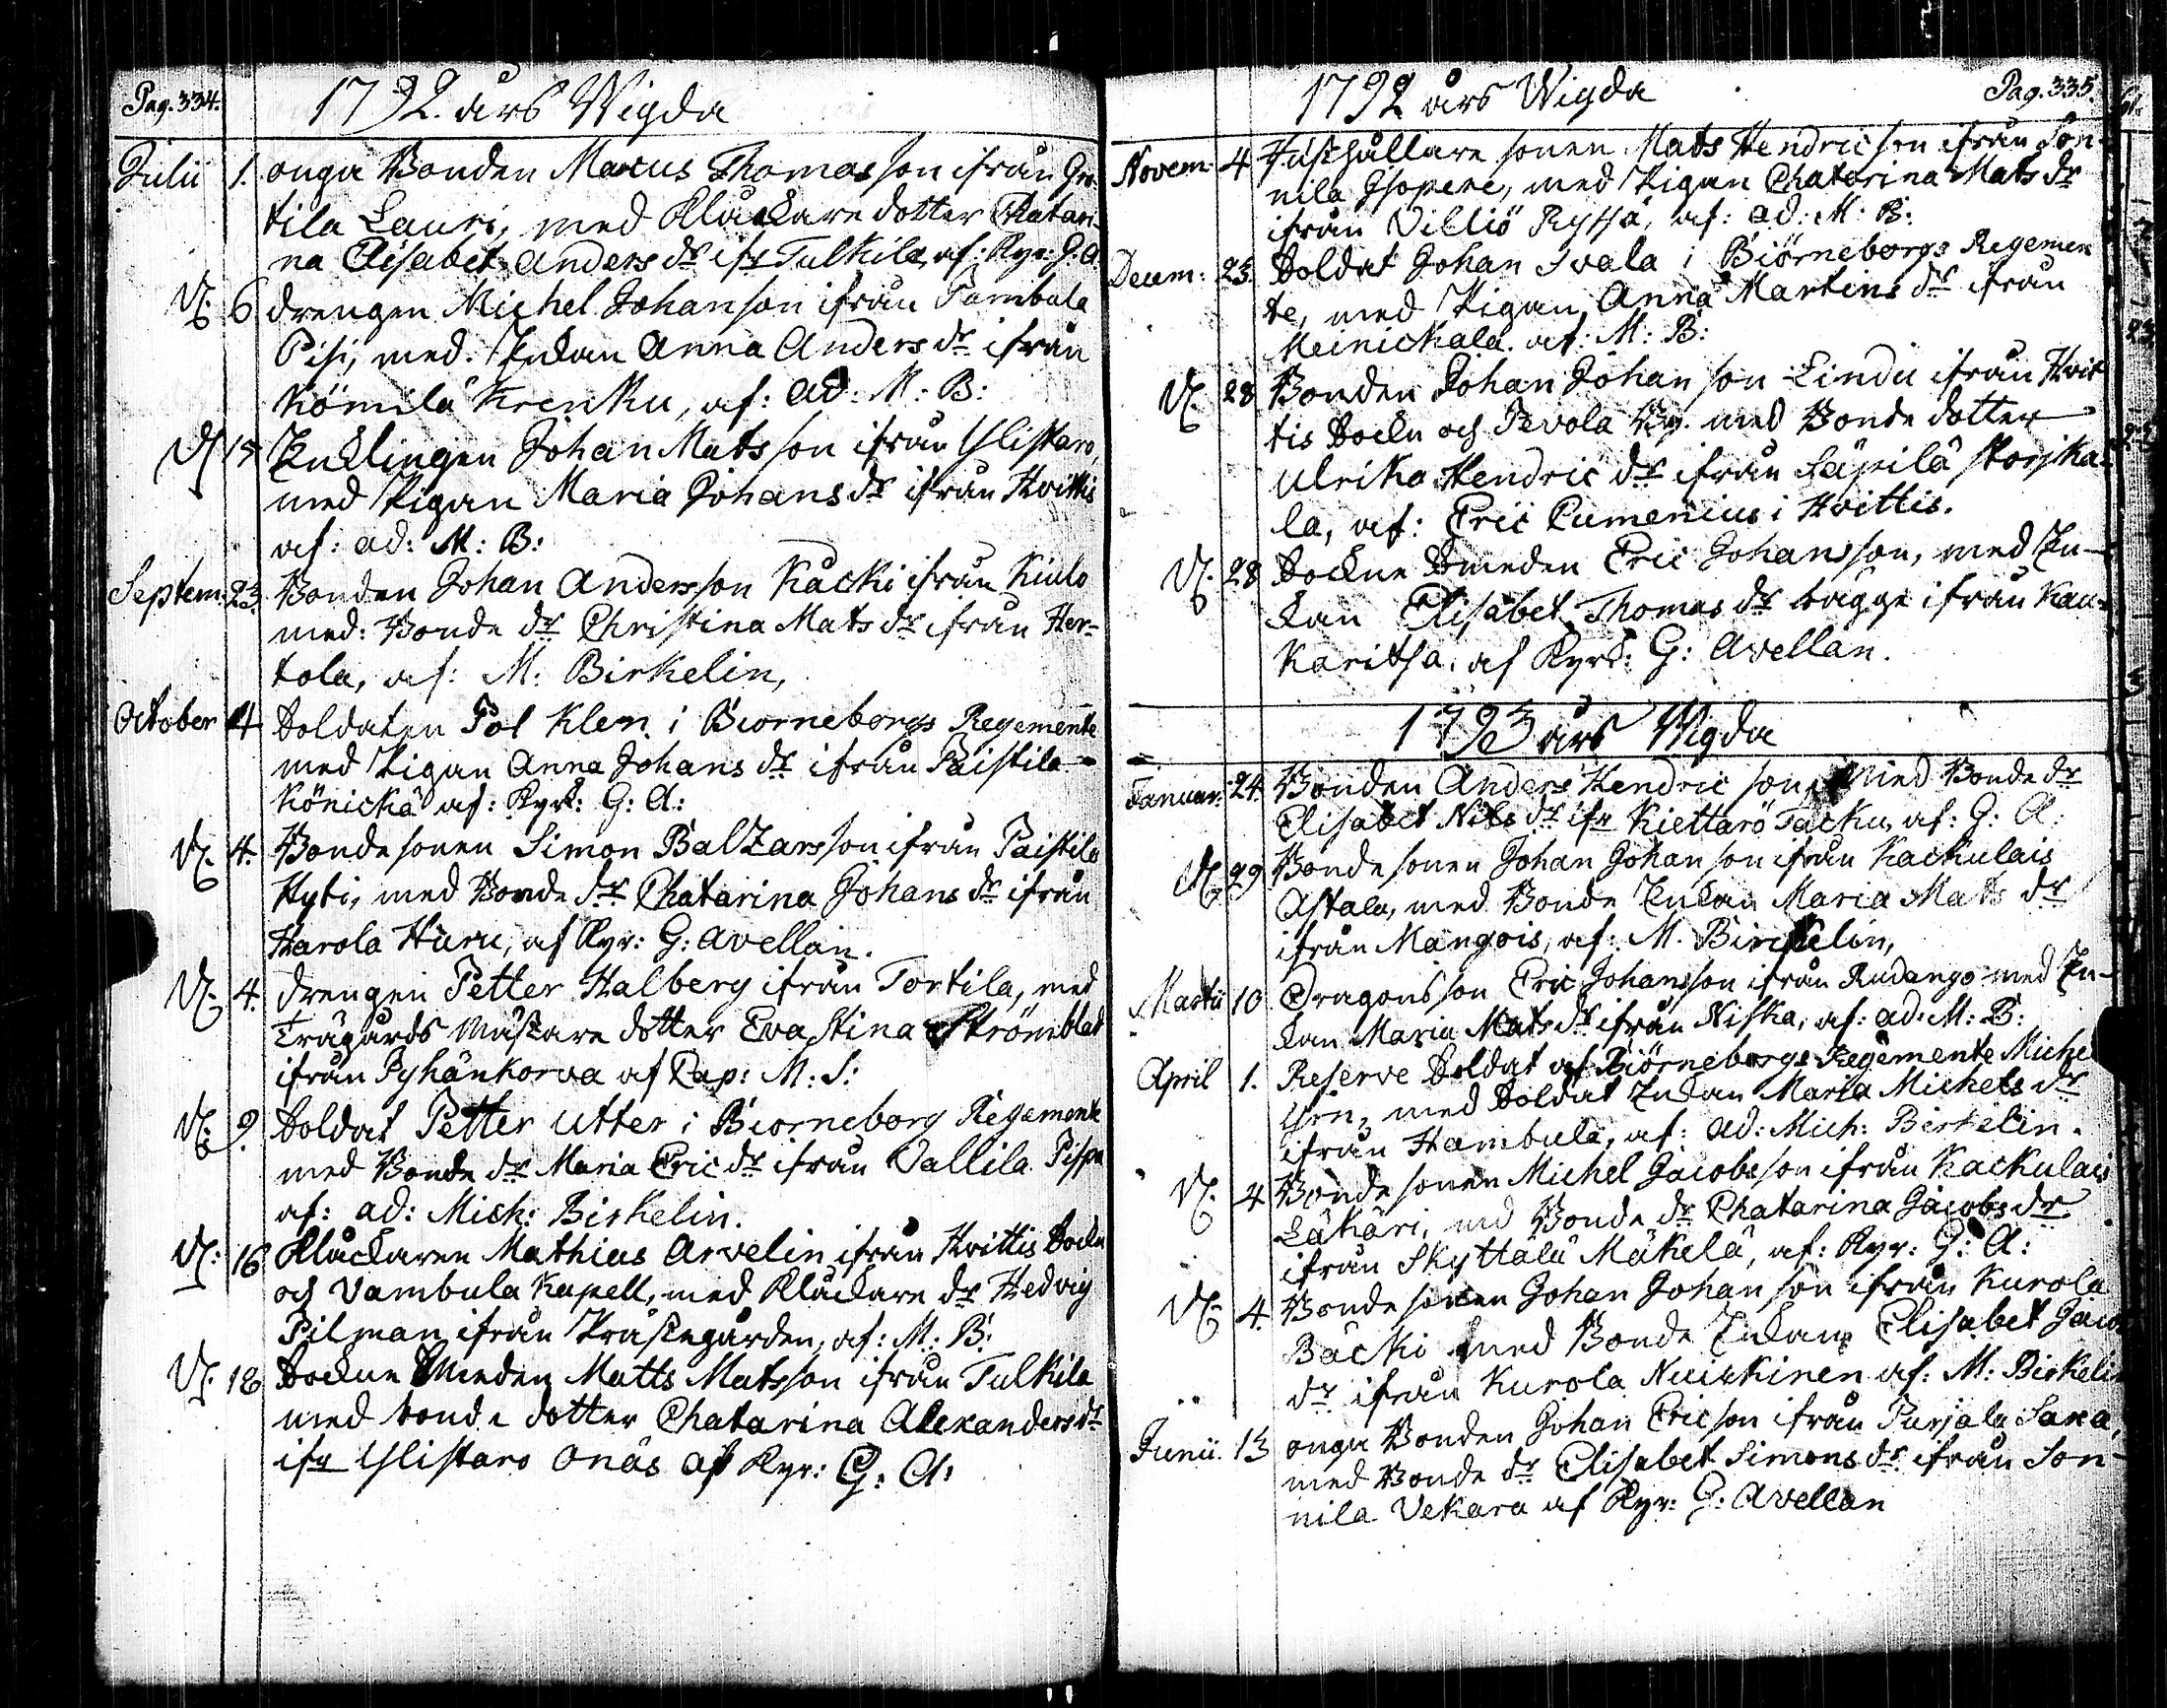 Pag. 334.
1792. års Wigda
Julii 1. onga Bonden Marcus Thomasson ifrån Gro-
tila Lauri, med Kläckare dotter Chatari-
na Elisabet Anders dr ifr Tulkila, af: Kyr: G. A
d. 6 drengen Michel Johanson ifrån Sambula
Pisi, med Enkan Anna Anders dr ifrån
Kömilä Krenku, af: ad: M: B:
d. 15 Enklingen Johan Matsson ifrån Ylistaro,
med Pigan Maria Johans dr ifrån Hvittis
af: ad: M: B:
Septem. 23. Bonden Johan Andersson Käcki ifrån Kiulo
med: Bonde dr Christina Mats dr ifrån Her-
tola, af: M: Birkelin,
October 4 Soldaten Pol Klem i Biorneborgs Regemente
med Pigan Anna Johans dr ifrån Paistila
Könickä af: Kyrk: G: A:
d. 4. Bonde sonen Simon Baltzarsson ifrån Paistila
Hyti, med Bonde dr Chatarina Johans dr ifrån
Harola Huru, af Kyr: G: Avellan.
d. 4. drengen Petter Halberg ifrån Tortila, med
Trägårds Mästare dotter Eva Stina Strömblad
ifrån Pyhänkorva af Cap: M: S:
d. 9. Soldat Petter Utter i Biorneborg Regemente
med Bonde dr Maria Eric dr ifrån Vallila Pispa
af: ad: Mich: Birkelin.
d: 16 Klåckaren Mathias Arvelin ifrån Hvittis Sockn
och Vambula Kapell, med Klåckare dr Hedvig
Pilman ifrån Prästegården, af: M: B:
d. 18 Sockne Smeden Matts Matsson ifrån Tulkila
med bonde dotter Chatarina Alexanders dr
ifr Ylistaro Onäs af Kyr: G: A:
Pag. 335.
1792 års Wigda
Novem: 4 Rusthållare sonen Mats Hendricson ifrån Son-
nila Isopere, med Pigan Chatarina Mats dr
ifrån Villiö Ryssä, af: ad: M: B:
Decem: 23. Soldat Johan Svala i Biörneborgs Regemen
te, med Pigan Anna Martins dr ifrån
Meinickala. af: M: B:
d. 28 Bonden Johan Johanson Lindu ifrån Hvit
tis Sockn och Pevola By. med Bonde dotter
Ulrika Hendric dr ifrån Säpilä Storska-
la, af: Eric Cumenius i Hvittis.
d. 28 Sockne Smeden Eric Johansson, med En-
kan Elisabet Thomas dr bägge ifrån Kau-
karitsa, af Kyrk: G: Avellan.
1793 års Wigda
Januar: 24. Bonden Anders Hendricson, Med Bonde dr
Elisabet Nils dr ifr Kiettarö Tacku, af: G: A:
d. 29 Bonde sonen Johan Johanson ifrån Kackulais
Astala, med Bonde Enkan Maria Mats dr
ifrån Mangois, af: M. Birckelin,
Martii 10 Dragonsson Eric Johansson ifrån Rudango med En-
kan Maria Mats dr ifrån Niska, af: ad: M: B:
April 1. Reserve Soldat af Biörneborgs Regemente Michel
Yrn, med Soldat Enkan Maria Michels dr
ifrån Hambula, af: ad: Mich: Birkelin.
d. 4 Bonde sonen Michel Jacobsson ifrån Kackulais
Lähäri, med Bonde dr Chatarina Jacobs dr
ifrån Skyttälä Mäkelä, af: Kyr: G: A:
d. 4. Bonde sonen Johan Johanson ifrån Kurola
Bäcki med Bonde Enkan Elisabet Jacob
dr ifrån Kurola Nuickinen af: M: Birkelin
Junii. 13 onga Bonden Johan Ericson ifrån Purjala Saxa,
med Bonde dr Elisabet Simons dr ifrån Son-
nila Vekara af Kyr: G: Avellan